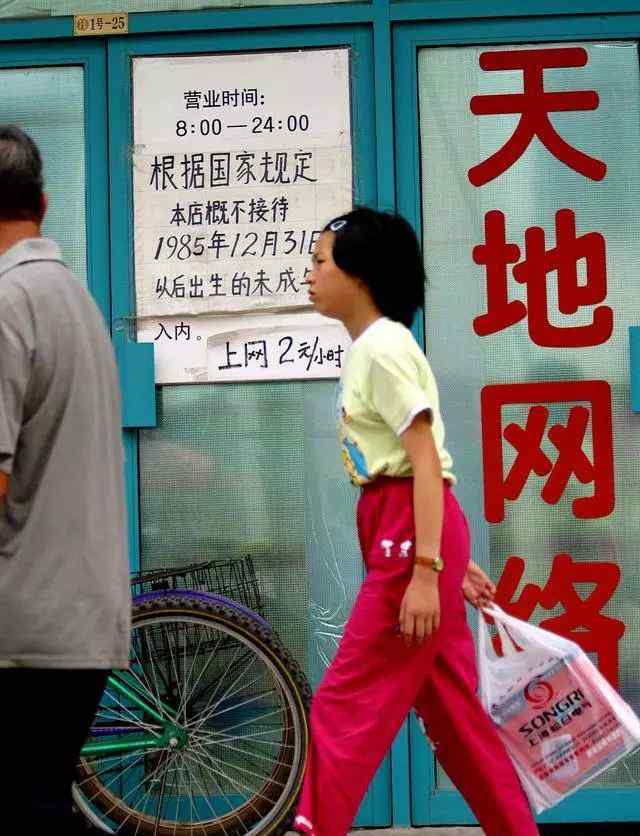 1号-25
营业时间:
8:00—24:00
根据国家规定
本店概不接待
1985年12月31日
以后出生的未成年
入内。
上网 2元/小时
天地网络
SONGRI